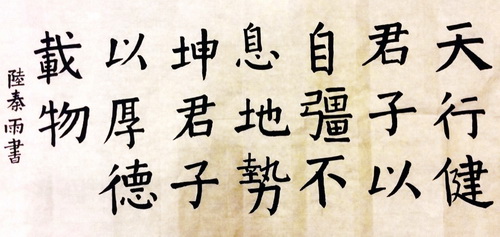 天行健
君子以
自彊不
息地勢
坤君子
以厚德
載物
陸泰雨書